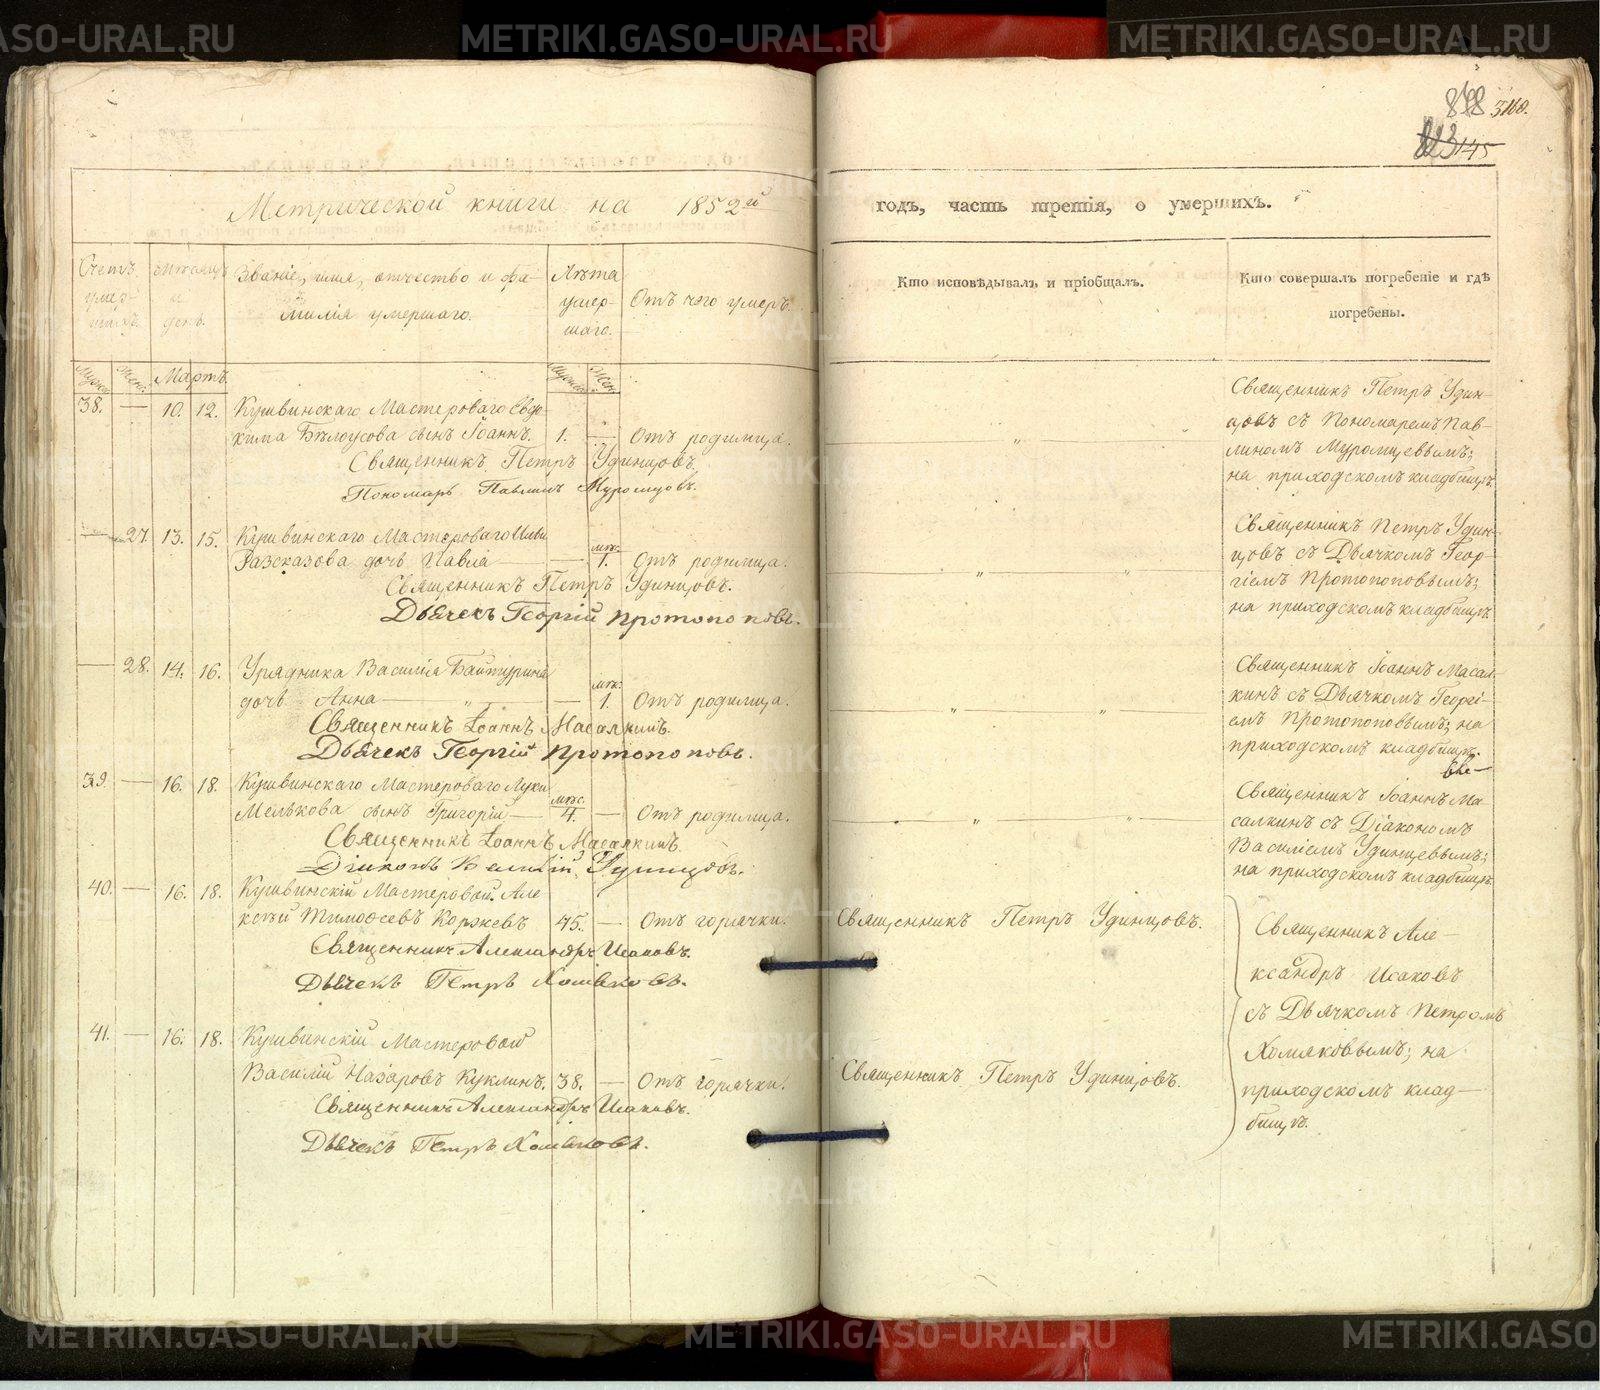 METRIKI.GASO-URAL.RU
848 3160.
823 145
Метрической книги на 1852й годъ, часть третія, о умершихъ.
Счетъ умершихъ.
Мѣсяцъ и день.
Званіе, имя, отчество и фамилія умершаго.
Лѣта умершаго.
Отъ чего умеръ.
Кто исповѣдывалъ и пріобщалъ.
Кто совершалъ погребеніе и гдѣ погребены.
Мужск. Женс. Мартъ. Мужск. Жен.
38. — 10. 12. Кушвинскаго Мастероваго Евдо-
кима Бѣлоусова сынъ Іоаннъ. 1. — Отъ родимца.
Священникъ Петръ Удинцовъ.
Пономарь Павлинъ Муромцовъ.
Священникъ Петръ Удин-
цовъ съ Пономаремъ Пав-
линомъ Муромцевымъ;
на приходскомъ кладбищѣ.
— 27. 13. 15. Кушвинскаго Мастероваго Ильи
Разсказова дочь Павла — мѣс. 1. Отъ родимца.
Священникъ Петръ Удинцовъ.
Дьячекъ Георгій Протопоповъ.
Священникъ Петръ Удин-
цовъ съ Дьячкомъ Геор-
гіемъ Протопоповымъ;
на приходскомъ кладбищѣ.
— 28. 14. 16. Урядника Василія Байтурина
дочь Анна — мѣс. 1. Отъ родимца.
Священникъ Іоаннъ Масалкинъ.
Дьячекъ Георгій Протопоповъ.
Священникъ Іоаннъ Масал-
кинъ съ Дьячкомъ Георгі-
емъ Протопоповымъ; на
приходскомъ кладбищѣ.
39. — 16. 18. Кушвинскаго Мастероваго Луки
Мелькова сынъ Григорій — мѣс. 4. — Отъ родимца.
Священникъ Іоаннъ Масалкинъ.
Діаконъ Василій Удинцовъ.
Священникъ Іоаннъ Ма-
салкинъ съ Діакономъ
Василіемъ Удинцевымъ;
на приходскомъ кладбищѣ.
40. — 16. 18. Кушвинскій Мастеровой Але-
ксѣй Тимоѳеевъ Коряжевъ 75. — Отъ горячки. Священникъ Петръ Удинцовъ.
Священникъ Александръ Исаковъ.
Дьячекъ Петръ Хомяковъ.
41. — 16. 18. Кушвинскій Мастеровой
Василій Назаровъ Куклинъ. 38. — Отъ горячки. Священникъ Петръ Удинцовъ.
Священникъ Александръ Исаковъ.
Дьячекъ Петръ Хомяковъ.
Священникъ Але-
ксандръ Исаковъ
съ Дьячкомъ Петромъ
Хомяковымъ; на
приходскомъ клад-
бищѣ.